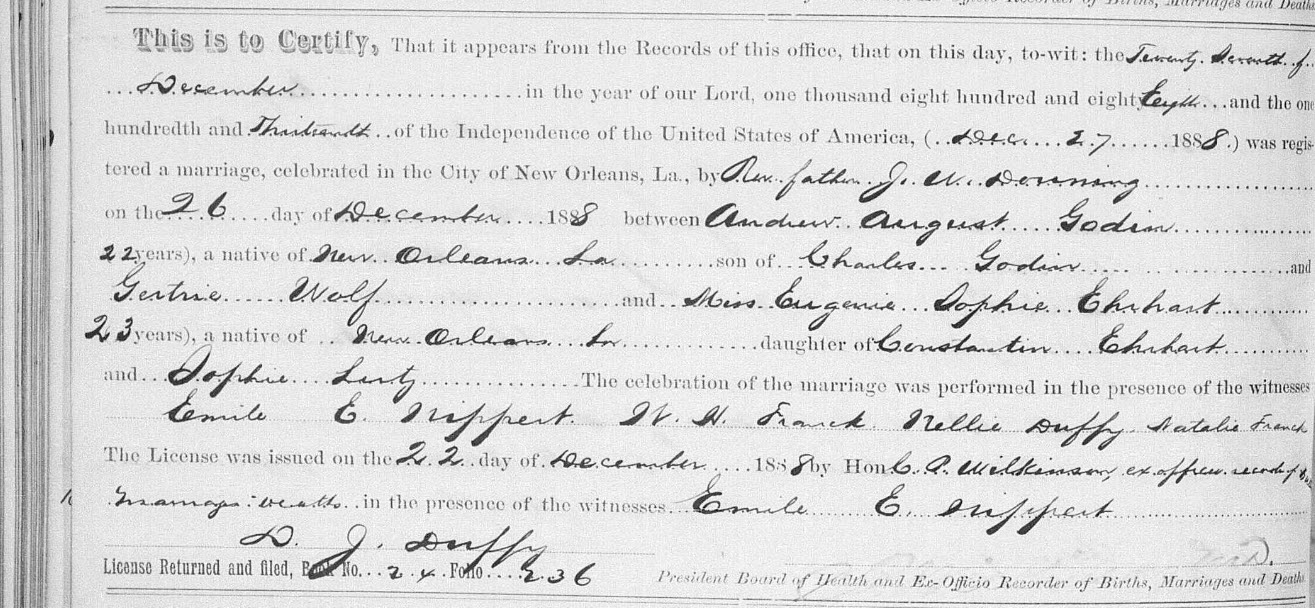 Ex-Officio Recorder of Births, Marriages and Deaths
This is to Certify, That it appears from the Records of this office, that on this day, to-wit: the Twenty Seventh of
December in the year of our Lord, one thousand eight hundred and eighty Eight and the one
hundredth and Thirteenth of the Independence of the United States of America, (Dec 27 1888.) was regis-
tered a marriage, celebrated in the City of New Orleans, La., by Rev. father J. W. Downing
on the 26 day of December 1888 between Andrew August Godin
22 years), a native of New Orleans La son of Charles Godin and
Gertrie Wolf and Miss Eugenie Sophie Ehrhart
23 years), a native of New Orleans La daughter of Constantin Ehrhart
and Sophie Lutz The celebration of the marriage was performed in the presence of the witnesses
Emile E. Nippert. W. H. Franck Nellie Duffy. Natalie Franck
The License was issued on the 22 day of December 1888 by Hon C. P. Wilkinson, ex officio recorder of
marriage deaths in the presence of the witnesses Emile E. Nippert
D. J. Duffy
License Returned and filed, Book No. 24 Folio 236
M.D.
President Board of Health and Ex-Officio Recorder of Births, Marriages and Deaths